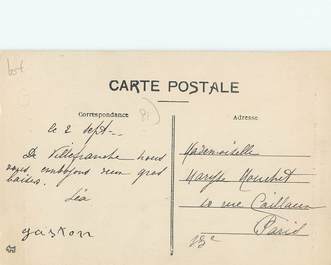 bot
CARTE POSTALE
Correspondance
Adresse
81
le 2 Sept.
De Villefranche nous
vous envoyons un gros
baiser.
Léa
gaston
Mademoiselle
Maryse
10 rue Caillaux
Paris
13e